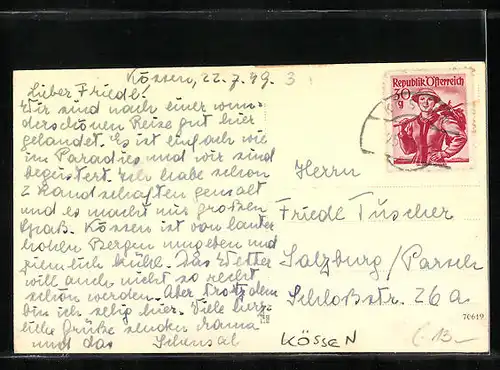 Kössen, 22.7.49. 3
Lieber Friedl!
Wir sind nach einer wun-
derschönen Reise gut hier
gelandet. Es ist einfach wie
im Paradies und wir sind
begeistert. Ich habe schon
2 Landschaften gemalt
und es macht mir großen
Spaß. Kössen ist von lauter
hohen Bergen umgeben und
ziemlich kühl. Das Wetter
will auch nicht so recht
schön werden. Aber trotzdem
bin ich selig hier. Viele herz-
liche Grüße senden Mama
und das
Republik Österreich
30
g
Herrn
Friedl Tuscher
Salzburg/Parsch
Schloßstr. 26a
70619
KÖSSEN